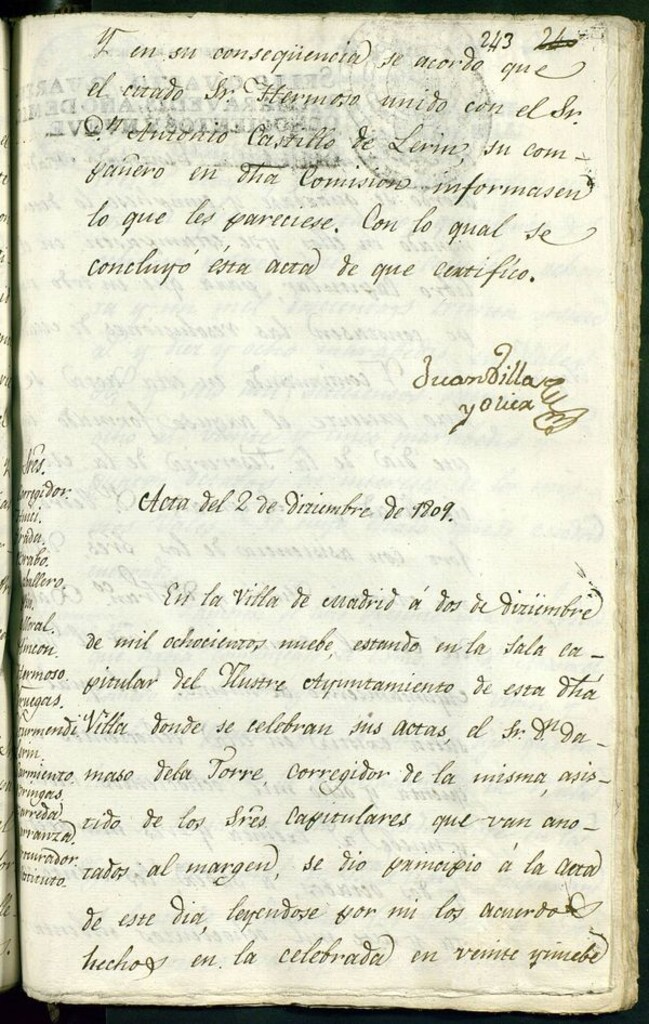 243 24
Y en su conseqüencia se acordo que
el citado Sr. Hermoso unido con el Sr.
Dn. Antonio Castillo de Lerin, su com-
pañero en dha Comision informasen
lo que les pareciese. Con lo qual se
concluyó ésta acta de que certifico.
Juan Villa
y Olier
Acta del 2 de diziembre de 1809.
En la Villa de Madrid á dos de diziembre
de mil ochocientos nuebe, estando en la sala ca-
pitular del Illustre Ayuntamiento de esta dha
Villa donde se celebran sus actas, el Sr. Dn. Da-
maso dela Torre, corregidor de la misma, asis-
tido de los Sres. Capitulares que van ano-
tados al margen, se dio principio á la acta
de este dia, leyendose por mi los acuerdos
hechos en la celebrada en veinte y nuebe
Sres.
rregidor.
rabo.
ballero.
rmoso.
ruegas.
urmendi
rmiento.
ringas.
arreda
rranza.
ocurador
stituto.